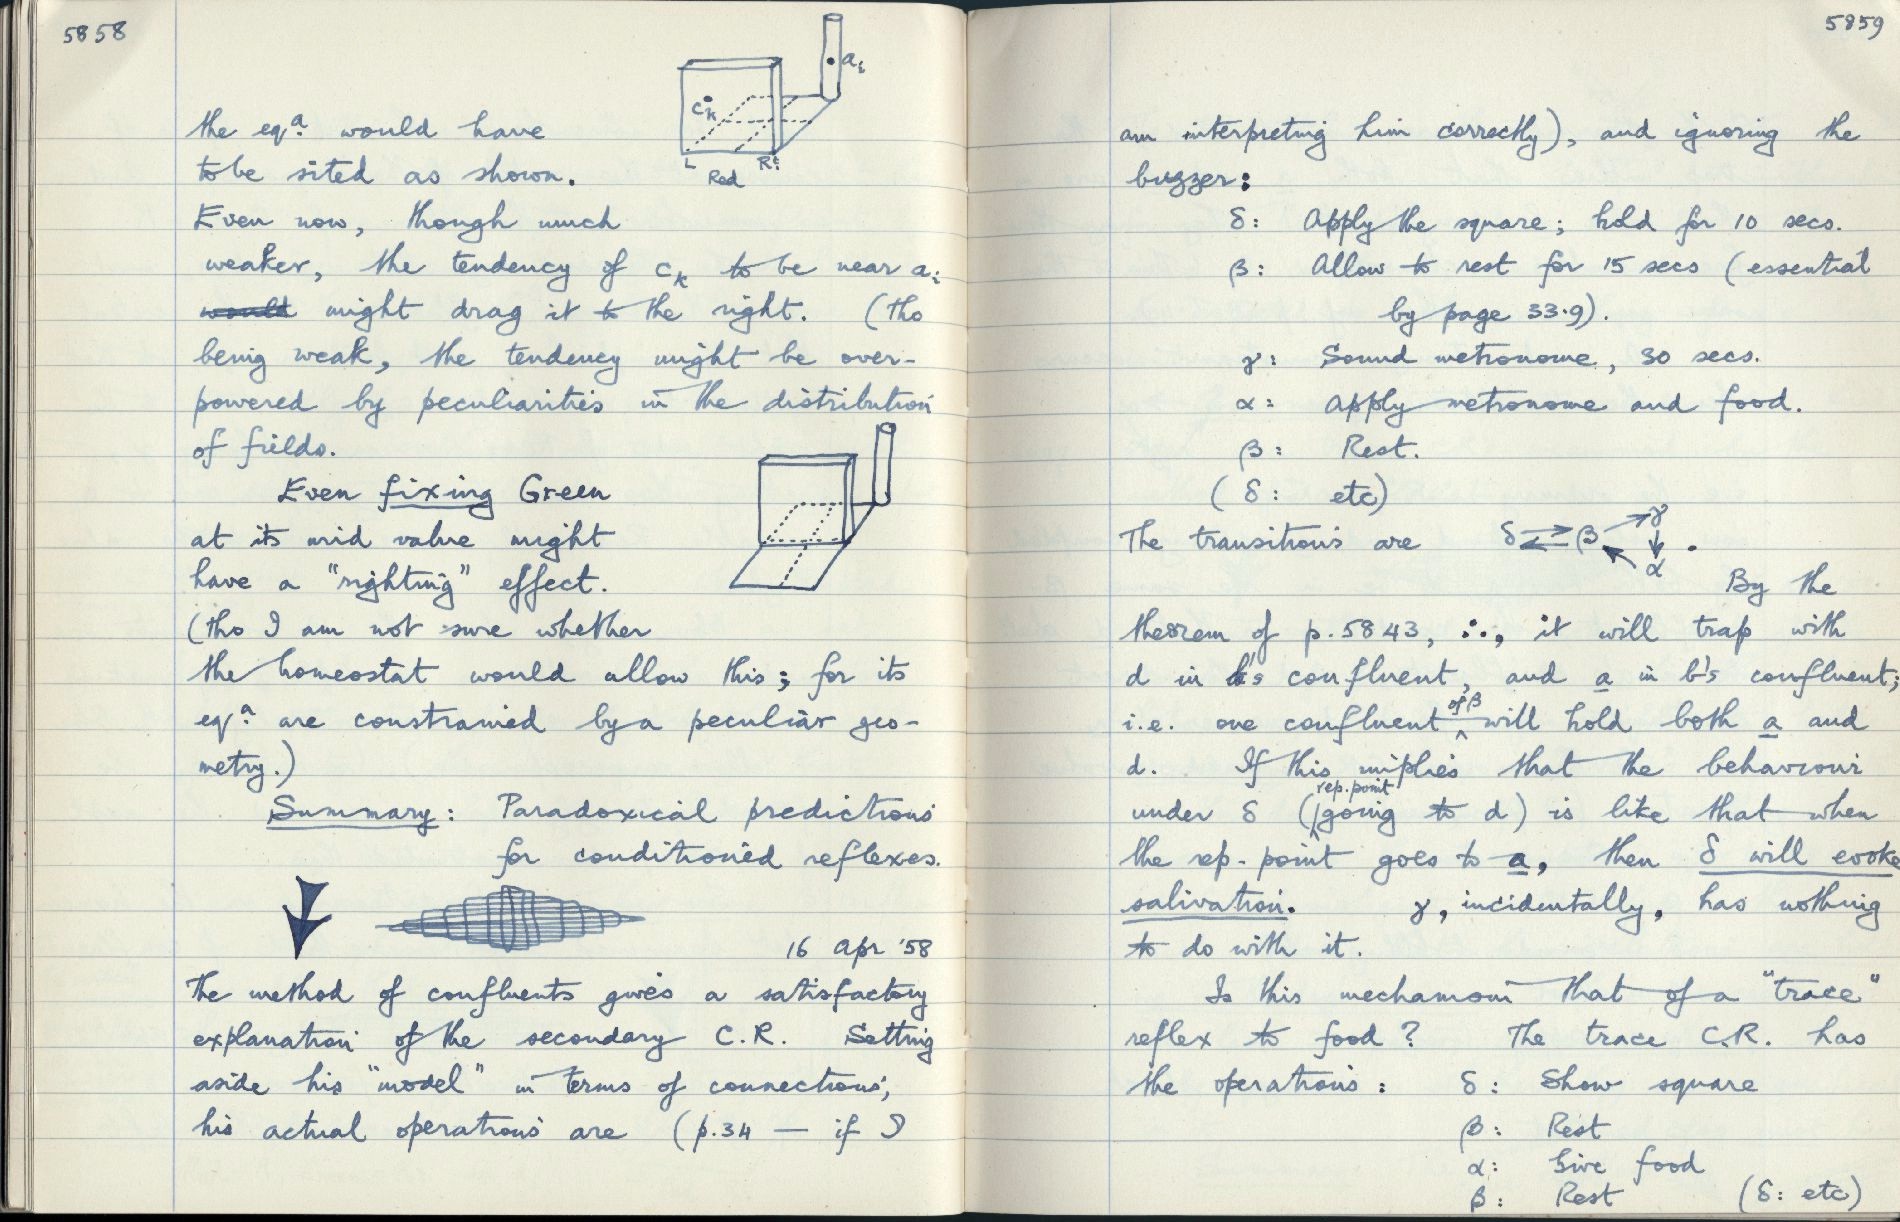 5858
the eqⁿ would have
to be sited as shown.
Even now, though much
weaker, the tendency of cₖ to be near aᵢ
would might drag it to the right. (tho
being weak, the tendency might be over-
powered by peculiarities in the distribution
of fields.
cₖ
aᵢ
L
Red
Even fixing Green
at its mid value might
have a "righting" effect.
(tho I am not sure whether
the homeostat would allow this; for its
eqⁿ are constrained by a peculiar geo-
metry.)
Summary: Paradoxical predictions
for conditioned reflexes.
16 Apr '58
The method of confluents gives a satisfactory
explanation of the secondary C.R. Setting
aside his "model" in terms of connections,
his actual operations are (p.34 — if I
5859
am interpreting him correctly), and ignoring the
buzzer:
δ: Apply the square; hold for 10 secs.
β: Allow to rest for 15 secs (essential
by page 33.9).
γ: Sound metronome, 30 secs.
α: Apply metronome and food.
β: Rest.
(δ: etc)
The transitions are δ ⇄ β → γ ↓ α.
By the
theorem of p.5843, ∴, it will trap with
d in b's confluent, and a in b's confluent;
i.e. one confluent of β will hold both a and
d. If this implies that the behaviour
under δ (rep. point going to d) is like that when
the rep-point goes to a, then δ will evoke
salivation. γ, incidentally, has nothing
to do with it.
Is this mechanism that of a "trace"
reflex to food? The trace C.R. has
the operations: δ: Show square
β: Rest
α: Give food
β: Rest (δ: etc)